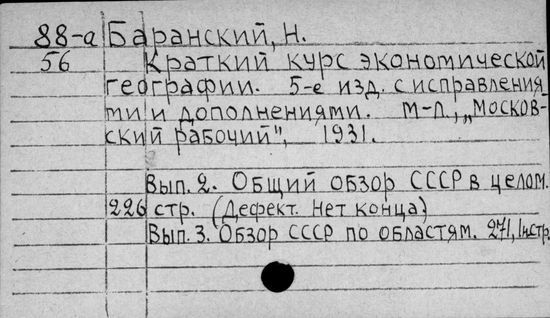 88-а Баранский, Н.
56 Краткий курс экономической
географии. 5-е изд. с исправления-
ми и дополнениями. М-Л., „Москов-
ский рабочий", 1931.
Вып. 2. Общий обзор СССР в целом.
226 стр. (Дефект. Нет конца)
Вып. 3. Обзор СССР по областям. 271, 1нстр.